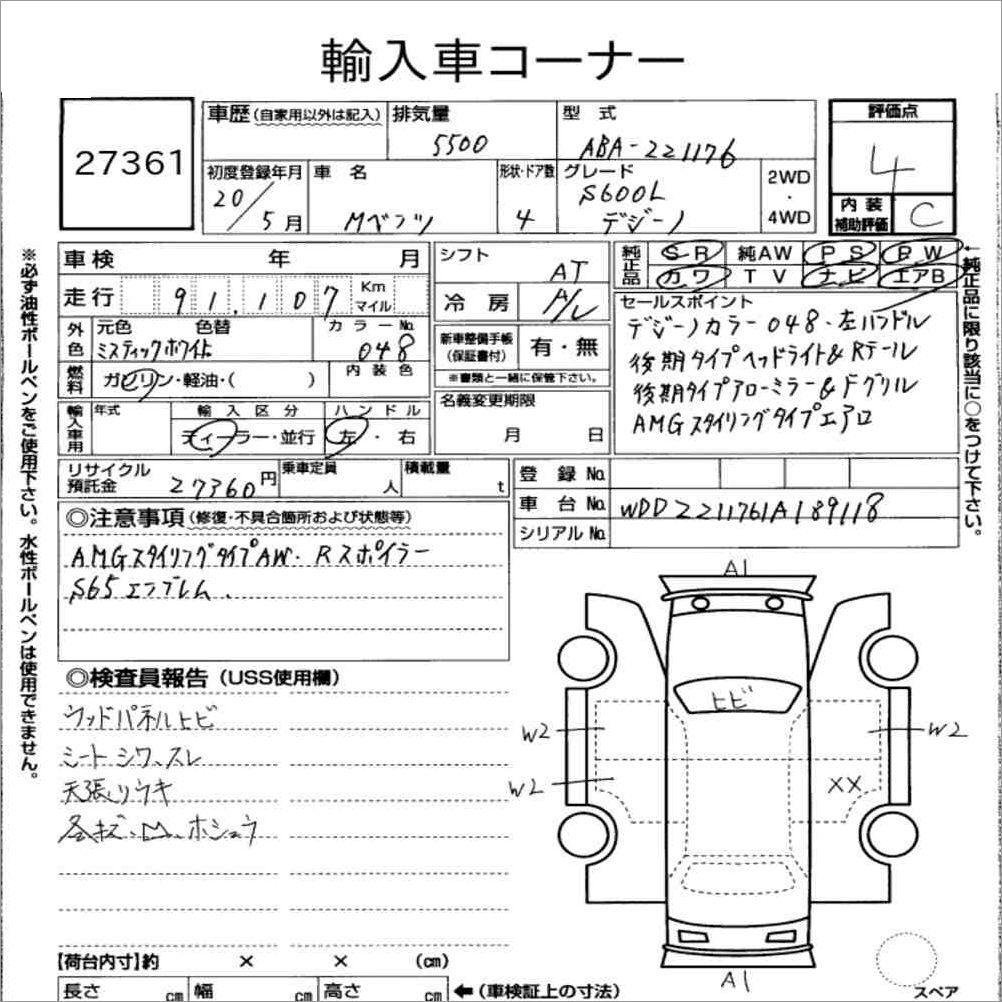 輸入車コーナー
27361
車歴 (自家用以外は記入) 排気量 5500 型式 ABA-221176
評価点 4
初度登録年月 20/5月 車名 Mベンツ 形状・ドア数 4 グレード S600L デジーノ 2WD・4WD
内装補助評価 C
車検 年 月
走行 91,107 Km マイル
外色 元色 色替 ミスティックホワイト カラーNo. 048
内装色
燃料 ガソリン・軽油・( )
輸入車用 年式 輸入区分 ディーラー・並行 ハンドル 左・右
シフト AT
冷房 A/C
新車整備手帳(保証書付) 有・無
※書類と一緒に保管下さい。
名義変更期限
月 日
純正品 SR 純AW PS PW
カワ TV ナビ エアB
セールスポイント
デジーノカラー048・左ハンドル
後期タイプヘッドライト&Rテール
後期タイプドアローミラー&Fグリル
AMGスタイリングタイプエアロ
←純正品に限り該当に○をつけて下さい。
※必ず油性ボールペンをご使用下さい。水性ボールペンは使用できません。
リサイクル預託金 27360円 乗車定員 人 積載量 t
登録No.
車台No. WDD2211761A189118
シリアルNo.
◎注意事項(修復・不具合箇所および状態等)
AMGスタイリングタイプAW・Rスポイラー
S65エンブレム.
◎検査員報告 (USS使用欄)
ウッドパネルヒビ
シートシワ、スレ
天張りウキ
各キズ、凹、ホシュウ
A1
ヒビ
W2
W2
W2
XX
A1
スペア
【荷台内寸】約 × × (cm)
長さ cm 幅 cm 高さ cm ←(車検証上の寸法)